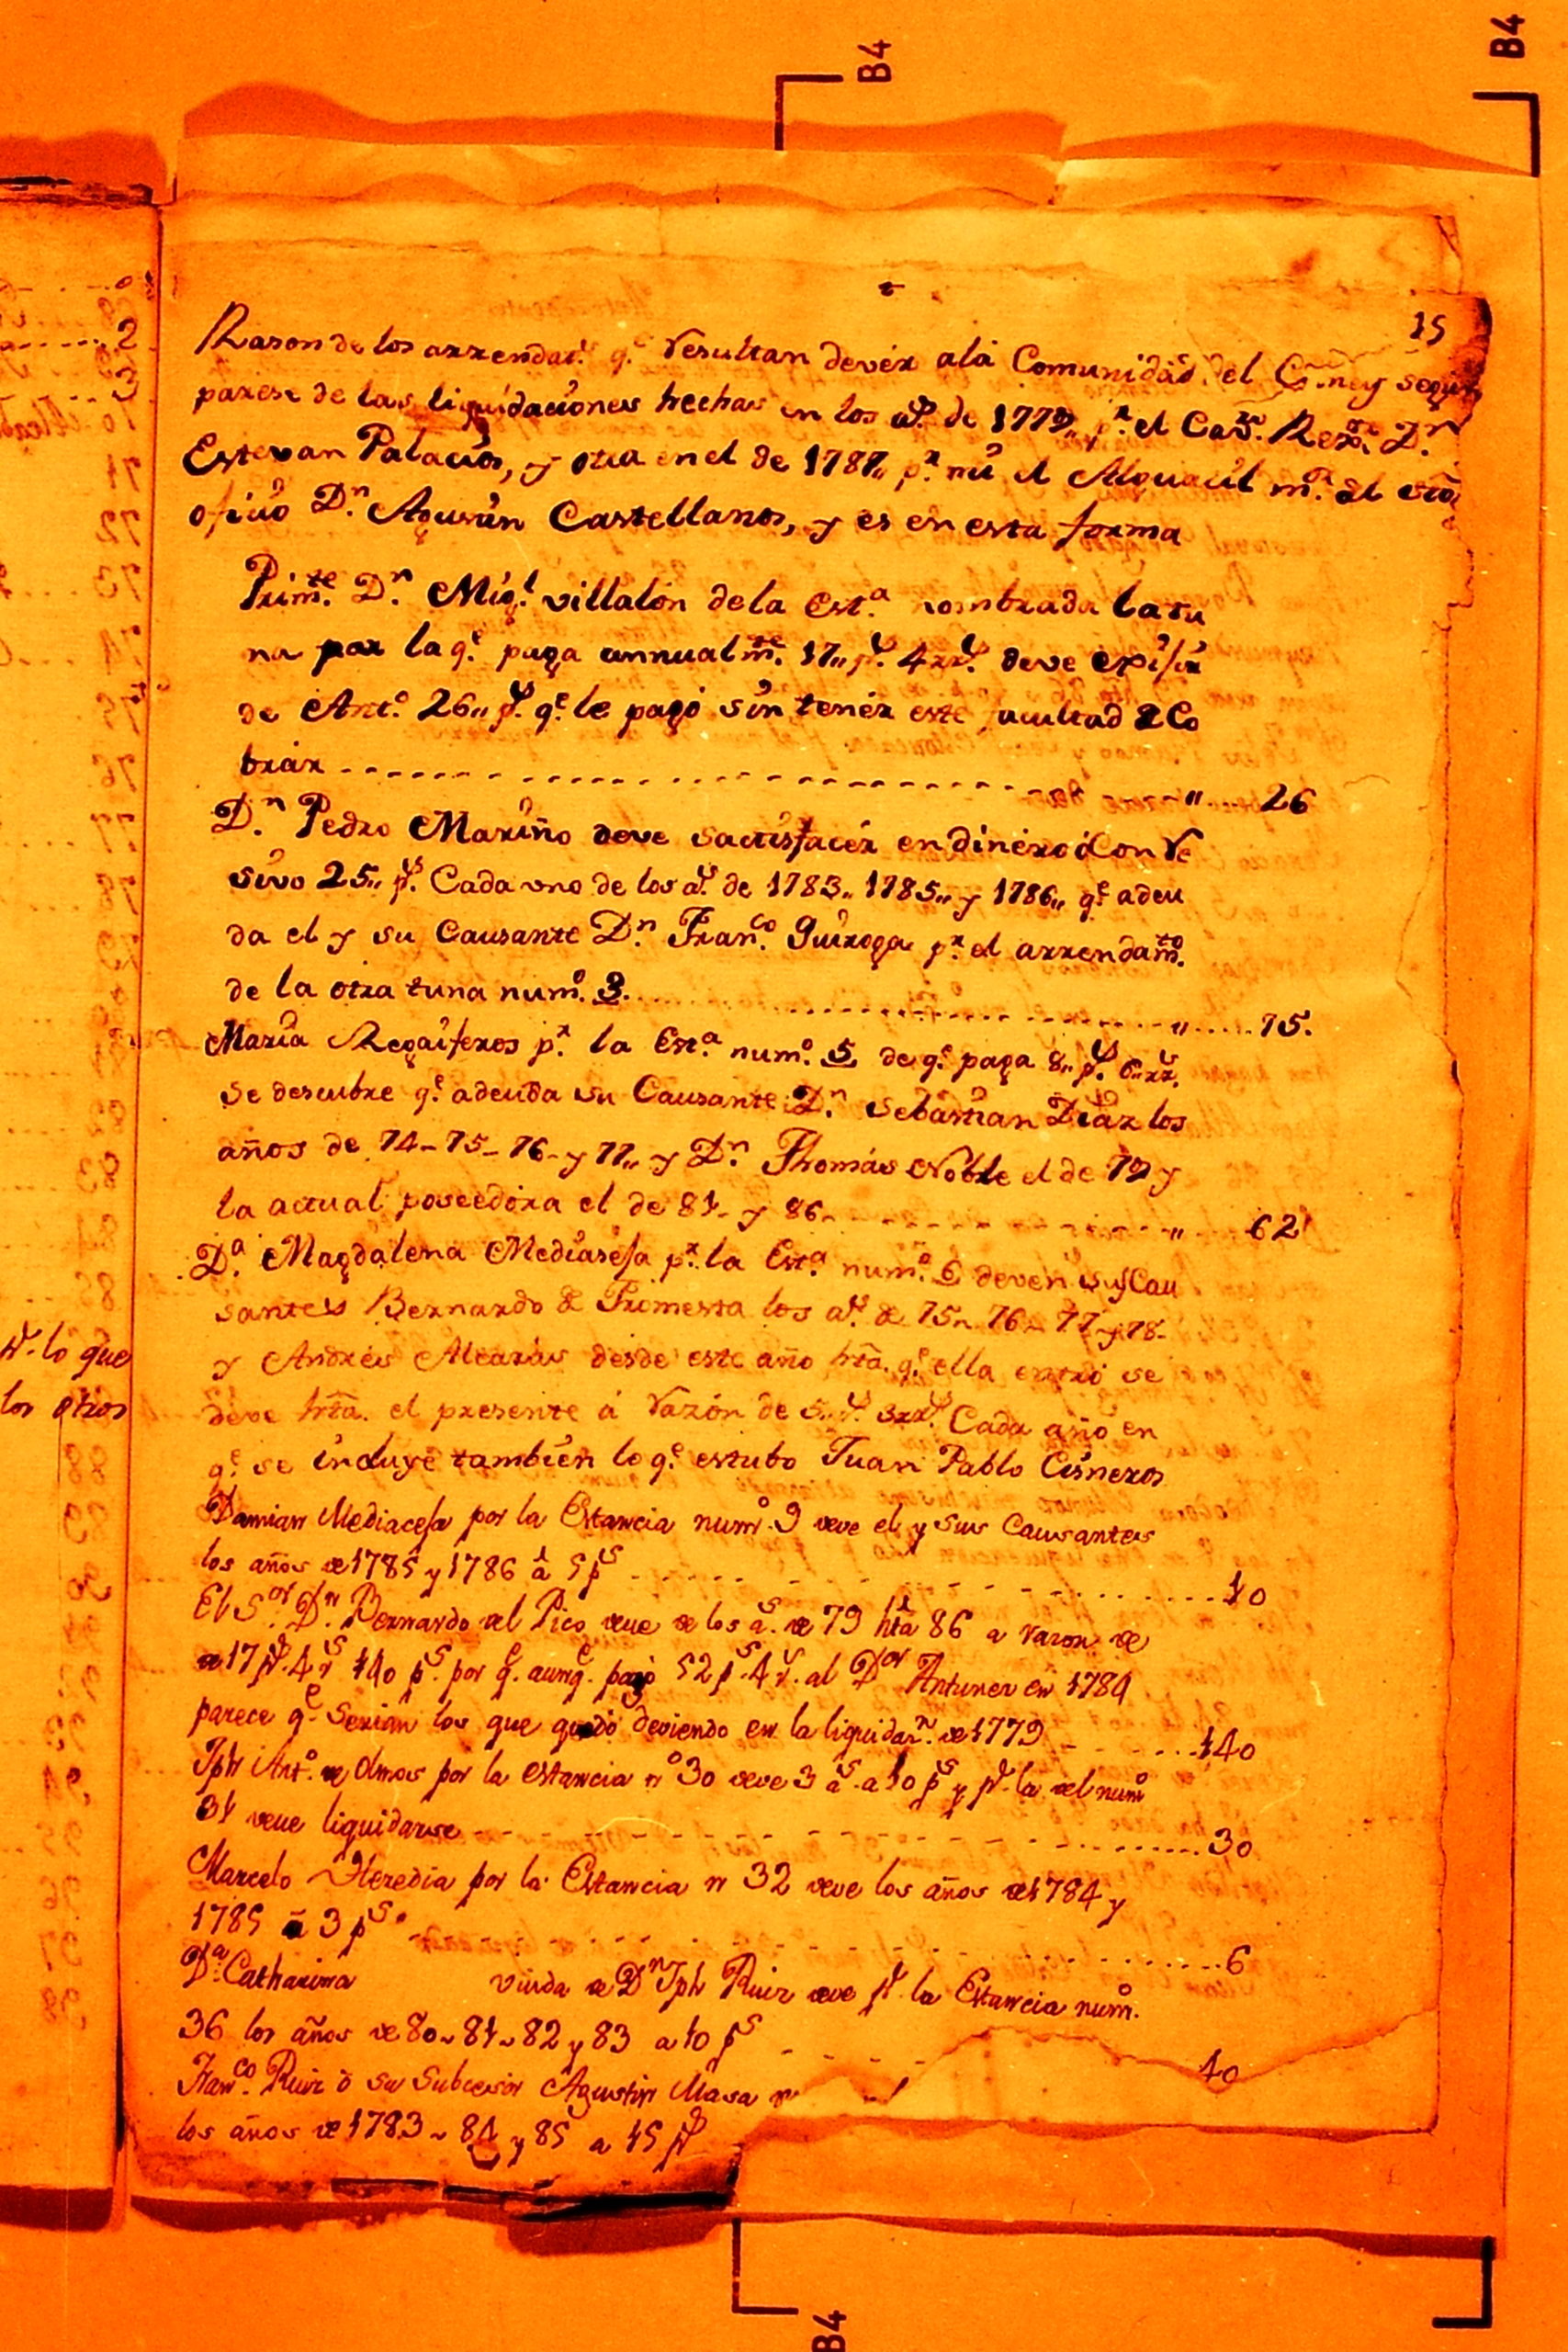 B4
B4
15
Razon de los arrendat.s q.e resultan devér ala Comunidad del Caney segun
parese de las liquidaciones hechas en los as. de 1779,, p.r el Cav.ro Rex.or D.n
Estevan Palacios, y otra en el de 1787,, p.r mi el Alguacil m.r del
oficio D.n Agustin Castellanos, y es en esta forma
Prim.te D.n Mig.l villalón dela Est.a nombrada la tu
na por la q.e paga annualm.te 17,, p.s 4 rr.s deve
de Ant.o 26,, p.s q.e le pagó sin tenér este facultad de Co
brar - - - - ,, .... 26
D.n Pedro Mariño deve sactisfacér en dinéro ó Con Re
sivo 25,, p.s Cada uno de los a.s de 1783,, 1785,, y 1786,, q.e adeu
da el y su Causante D.n Fran.co Quiroga p.r el arrendam.to
de la otra tuna num.o 3. .... ,, .... 75.
María Regaiferos p.r la Est.a num.o 5 de q.e paga 8,, p.s 6,, rr.s
se descubre q.e adeuda su Causante D.n Sebastian Diaz los
años de 74 - 75 - 76 - y 77,, y D.n Thomás Noble el de 79 y
la actual poseedora el de 81 - y 86 - - - - ,, .... 62
D.a Magdalena Mediasesa p.r la Est.a num.o 6 deven sus Cau
santes Bernardo de Fromesta los a.s de 75 - 76 - 77 - y 78 -
y Andrés Alcarás desde este año hta. q.e ella entró se
deve hta. el presente á razón de 5,, p.s 3 rr.s Cada año en
q.e se incluye también lo q.e estubo Juan Pablo Cisneros
Damian Mediacesa por la Estancia num.o 9 deve el y sus Causantes
los años de 1785 y 1786 á 5 p.s - - - - .... 10
El S.or D.n Bernardo del Pico deve de los a.s de 79 hta 86 a razon de
de 17 p.s 4 r.s 140 p.s por q.e aunq.e pagó 52 p.s 4 r.s al D.or Antunez en 1784
parece q.e Serian los que quedó deviendo en la liquidaz.n de 1779 - .... 140
Jph Ant.o de Olmos por la estancia n.o 30 deve 3 a.s a 10 p.s y p.r la del num.o
31 deve liquidarse - - - - .... 30
Marcelo Heredia por la Estancia n 32 deve los años de 1784 y
1785 a 3 p.s - - - - .... 6
D.a Catharina viuda de D.n Jph Ruiz deve p.r la Estancia num.o
36 los años de 80 - 81 - 82 y 83 a 10 p.s - - - - 40
Fran.co Ruiz ó su Subcesór Agustin Masa
los años de 1783 - 84 y 85 a 15 p.s
p.r lo que
los otros
B4